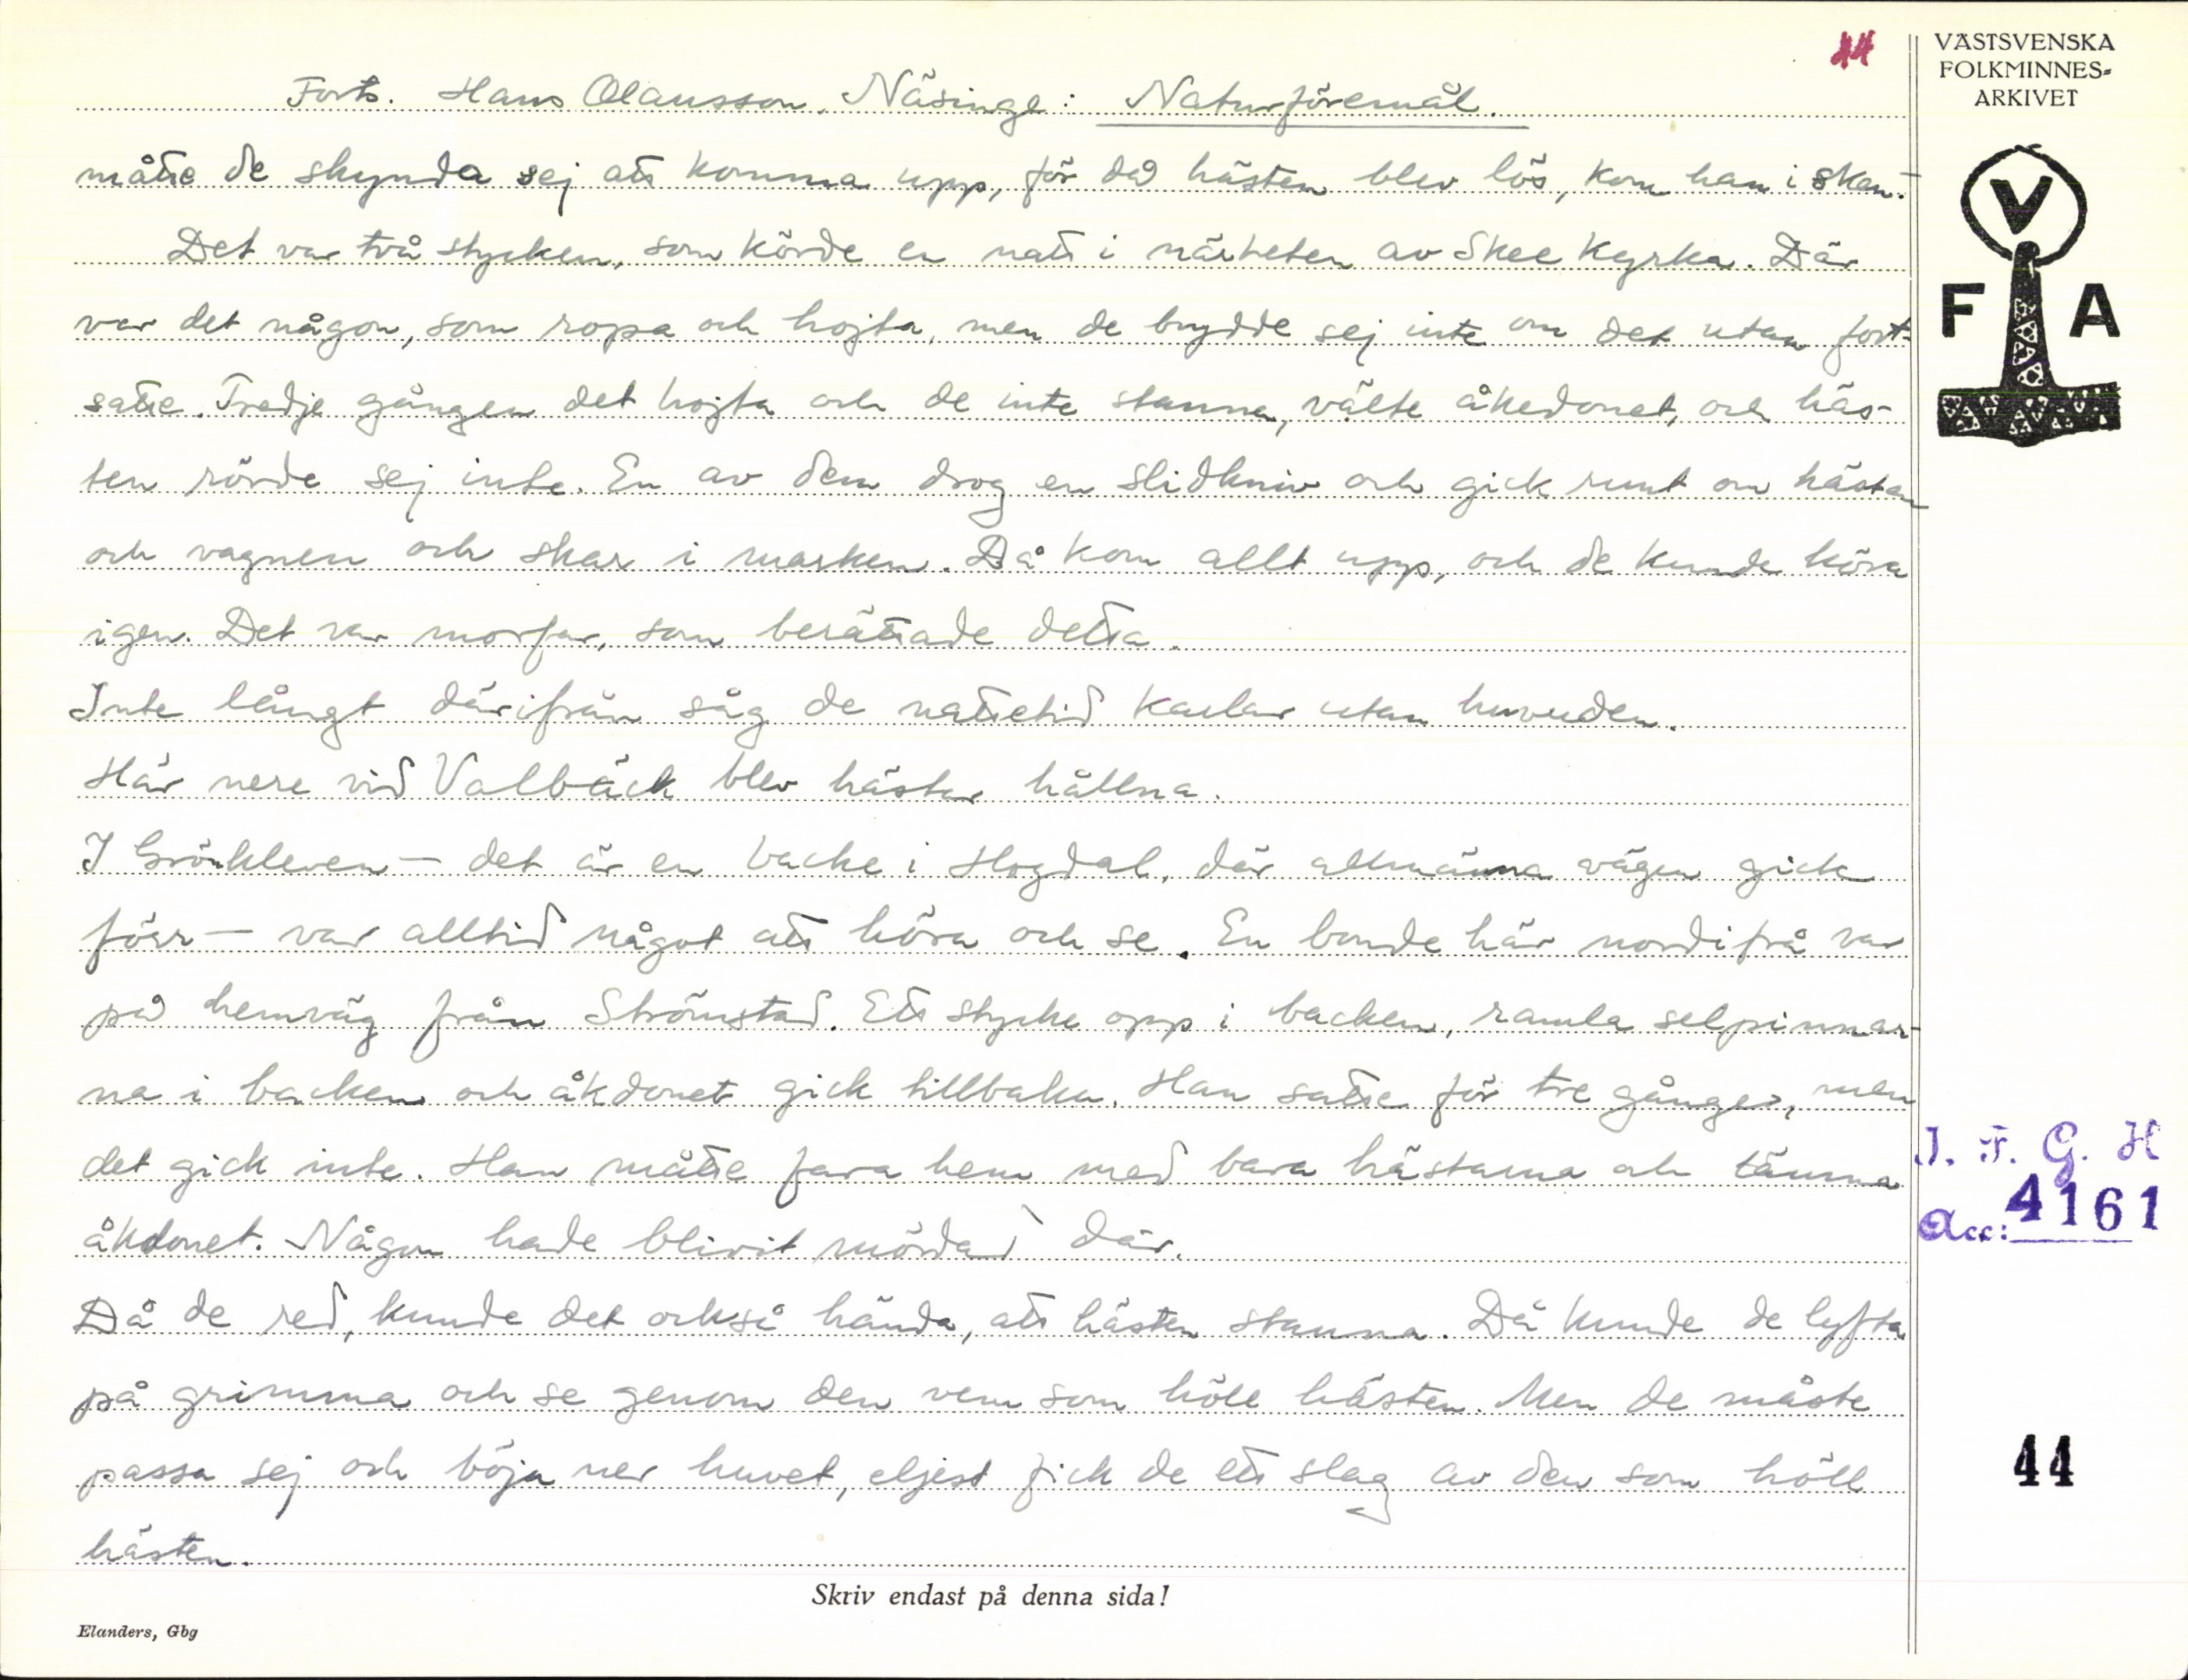 44
VÄSTSVENSKA
FOLKMINNES-
ARKIVET
V
F A
Forts. Hans Olausson, Näsinge: Naturföremål.
måtte de skynda sej att komma upp, för då hästen blev lös, kom han i sken.
Det var två stycken, som körde en natt i närheten av Skee Kyrka. Där
var det någon, som ropa och hojta, men de brydde sej inte om det utan fort-
satte. Tredje gången det hojta och de inte stanna, välte åkedonet, och häs-
ten rörde sej inte. En av dem drog en slidkniv och gick runt om hästen
och vagnen och skar i marken. Då kom allt upp, och de kunde köra
igen. Det var morfar, som berättade detta.
Inte långt därifrån såg de nattetid karlar utan huvuden.
Här nere vid Valbäck blev hästar hållna.
I Grönkleven — det är en backe i Hogdal, där allmänna vägen gick
förr — var alltid något att höra och se. En bonde här nordifrå var
på hemväg från Strömstad. Ett stycke opp i backen, ramla selpinnar-
na i backen och åkdonet gick tillbaka. Han satte för tre gånger, men
det gick inte. Han måtte fara hem med bara hästarna och lämna
åkdonet. Någon hade blivit mördad där.
Då de red, kunde det också hända, att hästen stanna. Då kunde de lyfta
på grimma och se genom den vem som höll hästen. Men de måste
passa sej och böja ner huvet, eljest fick de ett slag av den som höll
hästen.
I. F. G. H
Acc: 4161
44
Skriv endast på denna sida!
Elanders, Gbg